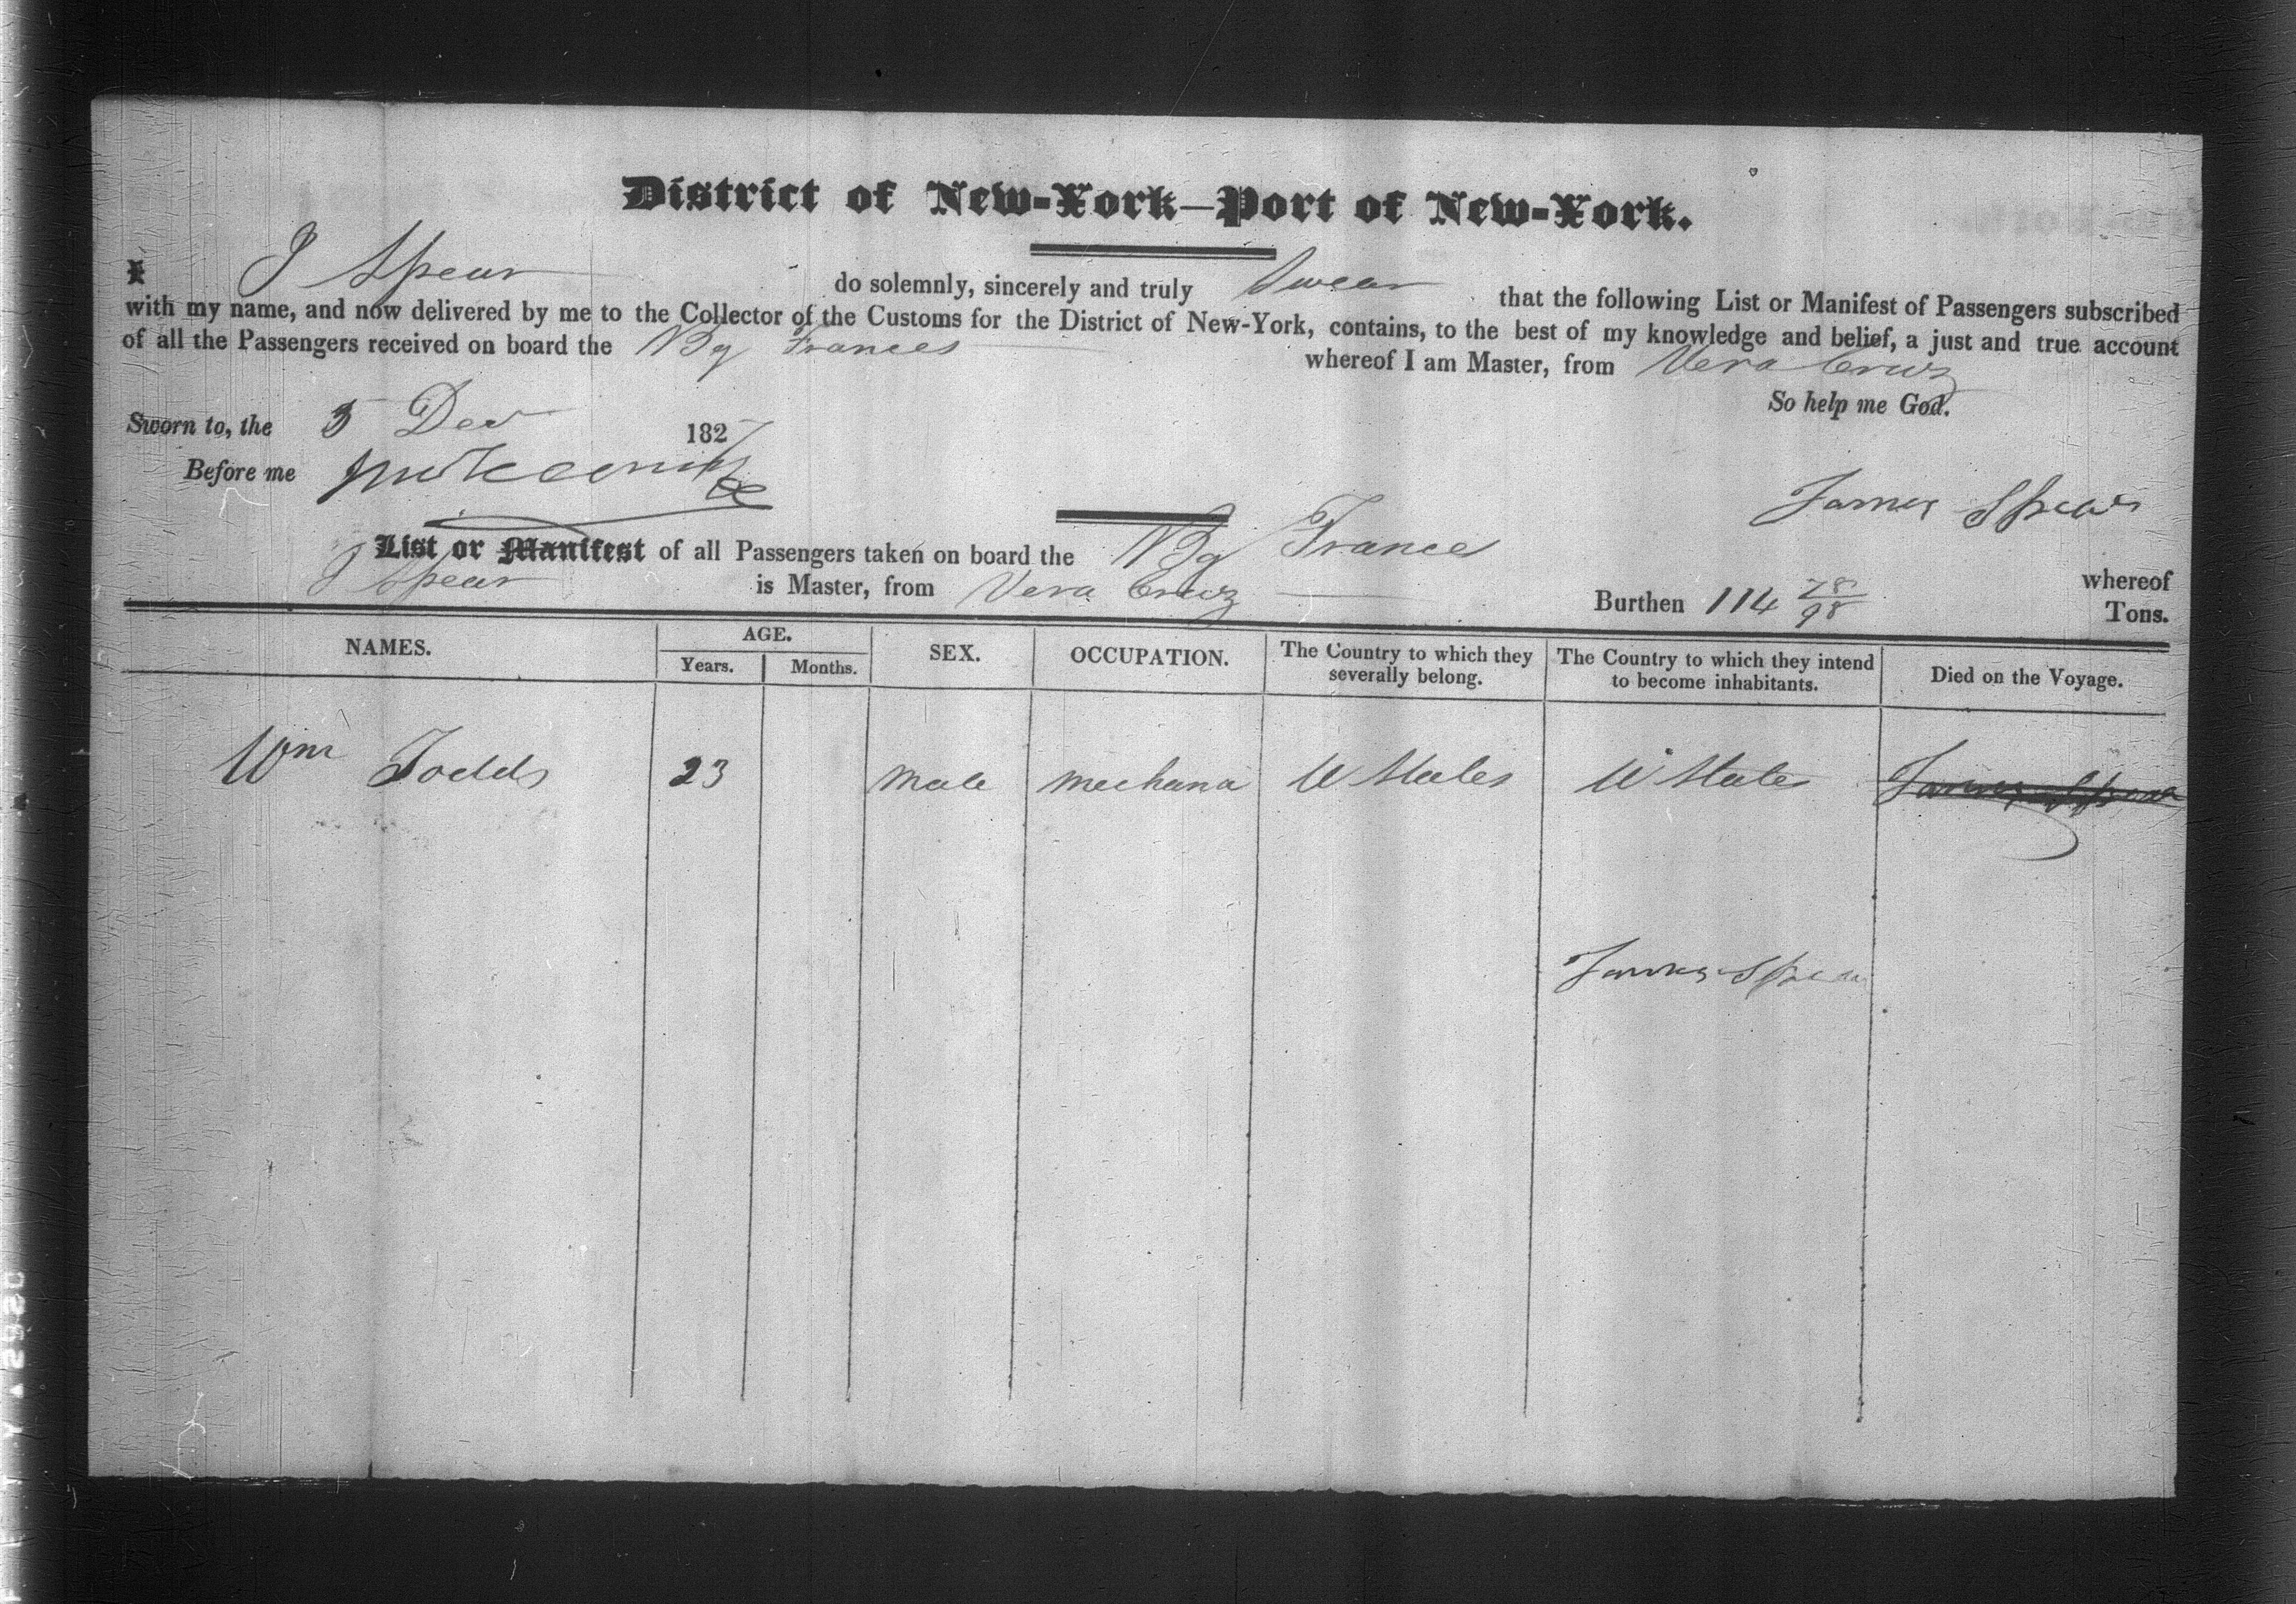 District of New-York—Port of New-York.
I J Spear do solemnly, sincerely and truly Swear that the following List or Manifest of Passengers subscribed
with my name, and now delivered by me to the Collector of the Customs for the District of New-York, contains, to the best of my knowledge and belief, a just and true account
of all the Passengers received on board the Bg Frances whereof I am Master, from Vera Cruz
So help me God.
Sworn to, the 5 Dec 1827
Before me
James Spear
List or Manifest of all Passengers taken on board the Bg Frances whereof
J Spear is Master, from Vera Cruz Burthen 114 78/98 Tons.
NAMES. AGE. SEX. OCCUPATION. The Country to which they severally belong. The Country to which they intend to become inhabitants. Died on the Voyage.
Years. Months.
Wm Todds 23 male mechana U States U States James Spear
James Spear